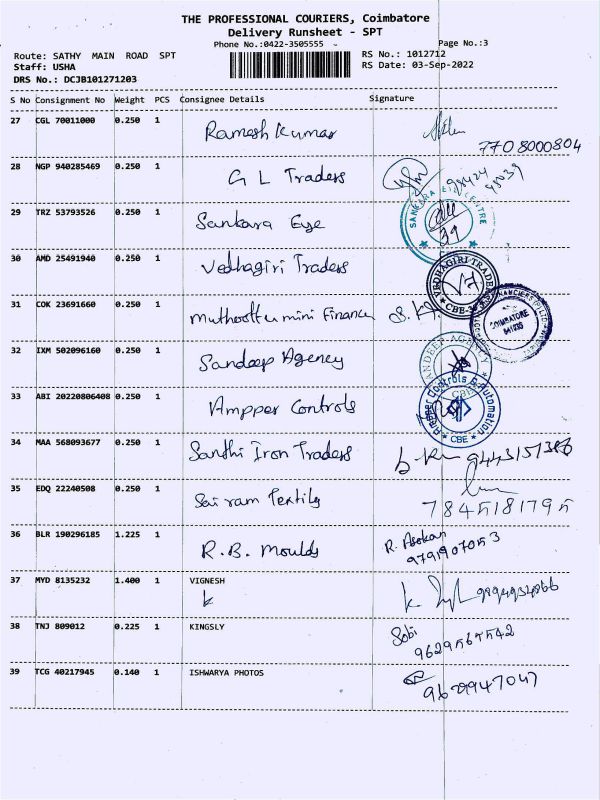 THE PROFESSIONAL COURIERS, Coimbatore
Delivery Runsheet - SPT
Phone No.:0422-3505555
Page No.:3
Route: SATHY MAIN ROAD SPT
RS No.: 1012712
Staff: USHA
RS Date: 03-Sep-2022
DRS No.: DCJB101271203
S No Consignment No Weight PCS Consignee Details Signature
27 CGL 70011000 0.250 1 Ramesh Kumar
7708000804
28 NGP 940285469 0.250 1 G L Traders
29 TRZ 53793526 0.250 1 Sankara Eye
SANKARA EYE CENTRE
30 AMD 25491940 0.250 1 Vedhagiri Traders
VEDHAGIRI TRADERS
31 COK 23691660 0.250 1 Muthoottu mini Finance
COIMBATORE
32 IXM 502096160 0.250 1 Sandeep Agency
SANDEEP AGENCY
33 ABI 20220806408 0.250 1 Ampper Controls
Ampper Controls & Automation
CBE
34 MAA 568093677 0.250 1 Santhi Iron Traders
35 EDQ 22240508 0.250 1 Sai ram Textily
7845181795
36 BLR 190296185 1.225 1 R.B. Moulds R. Asokan
9791907053
37 MYD 8135232 1.400 1 VIGNESH
k
38 TNJ 809012 0.225 1 KINGSLY Sobi
9629567542
39 TCG 40217945 0.140 1 ISHWARYA PHOTOS
9629947047